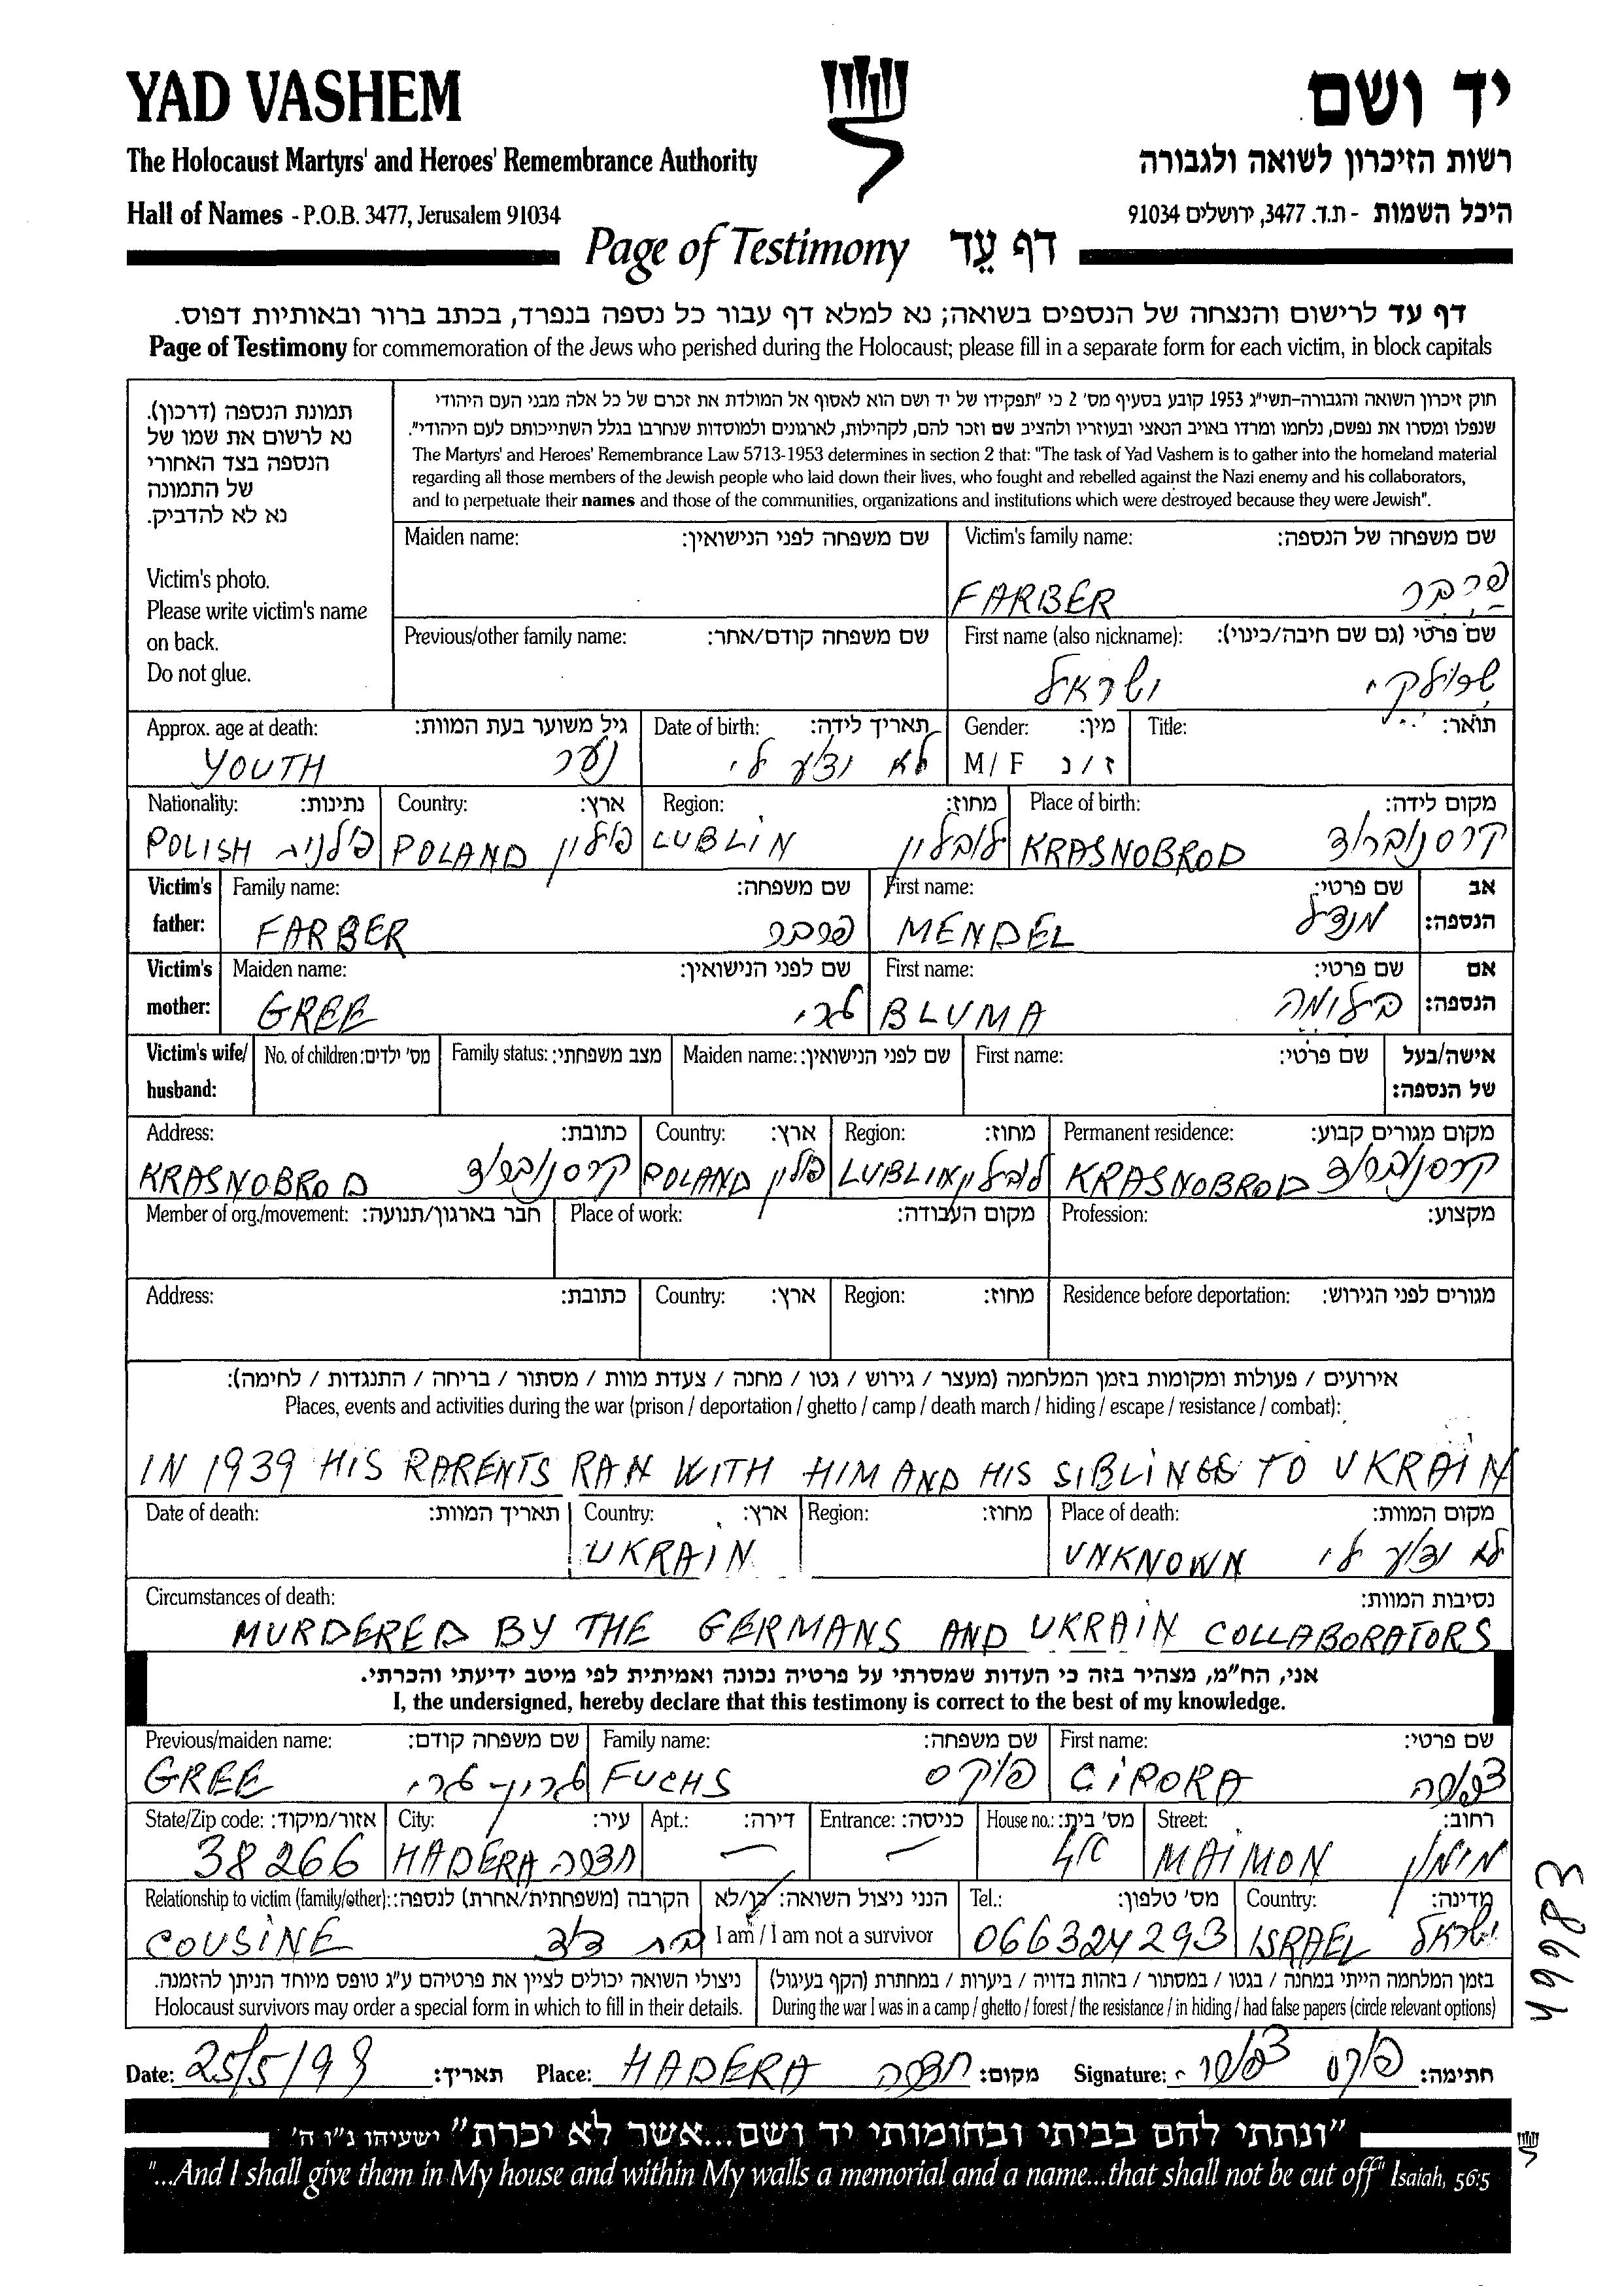 YAD VASHEM
יד ושם
The Holocaust Martyrs' and Heroes' Remembrance Authority
רשות הזיכרון לשואה ולגבורה
Hall of Names - P.O.B. 3477, Jerusalem 91034
היכל השמות - ת.ד. 3477, ירושלים 91034
Page of Testimony דף עֵד
דף עד לרישום והנצחה של הנספים בשואה; נא למלא דף עבור כל נספה בנפרד, בכתב ברור ובאותיות דפוס.
Page of Testimony for commemoration of the Jews who perished during the Holocaust; please fill in a separate form for each victim, in block capitals
תמונת הנספה (דרכון).
נא לרשום את שמו של
הנספה בצד האחורי
של התמונה
נא לא להדביק.
Victim's photo.
Please write victim's name
on back.
Do not glue.
חוק זיכרון השואה והגבורה-תשי"ג 1953 קובע בסעיף מס' 2 כי "תפקידו של יד ושם הוא לאסוף אל המולדת את זכרם של כל אלה מבני העם היהודי
שנפלו ומסרו את נפשם, נלחמו ומרדו באויב הנאצי ובעוזריו ולהציב שם וזכר להם, לקהילות, לארגונים ולמוסדות שנחרבו בגלל השתייכותם לעם היהודי".
The Martyrs' and Heroes' Remembrance Law 5713-1953 determines in section 2 that: "The task of Yad Vashem is to gather into the homeland material
regarding all those members of the Jewish people who laid down their lives, who fought and rebelled against the Nazi enemy and his collaborators,
and to perpetuate their names and those of the communities, organizations and institutions which were destroyed because they were Jewish".
Maiden name: שם משפחה לפני הנישואין: Victim's family name: שם משפחה של הנספה:
FARBER פרבר
Previous/other family name: שם משפחה קודם/אחר: First name (also nickname): שם פרטי (גם שם חיבה/כינוי):
ישראל
Approx. age at death: גיל משוער בעת המוות: Date of birth: תאריך לידה: Gender: מין: Title: תואר:
YOUTH נער לא ידוע לי M / F ז / נ
Nationality: נתינות: Country: ארץ: Region: מחוז: Place of birth: מקום לידה:
POLISH פולנית POLAND פולין LUBLIN לובלין KRASNOBROD קרסנוברוד
Victim's father: Family name: שם משפחה: First name: שם פרטי: אב הנספה:
FARBER פרבר MENDEL מנדל
Victim's mother: Maiden name: שם לפני הנישואין: First name: שם פרטי: אם הנספה:
GREE גרי BLUMA בלומה
Victim's wife/ husband: No. of children: מס' ילדים: Family status: מצב משפחתי: Maiden name: שם לפני הנישואין: First name: שם פרטי: אישה/בעל של הנספה:
Address: כתובת: Country: ארץ: Region: מחוז: Permanent residence: מקום מגורים קבוע:
KRASNOBROD קרסנוברוד POLAND פולין LUBLIN לובלין KRASNOBROD קרסנוברוד
Member of org./movement: חבר בארגון/תנועה: Place of work: מקום העבודה: Profession: מקצוע:
Address: כתובת: Country: ארץ: Region: מחוז: Residence before deportation: מגורים לפני הגירוש:
אירועים / פעולות ומקומות בזמן המלחמה (מעצר / גירוש / גטו / מחנה / צעדת מוות / מסתור / בריחה / התנגדות / לחימה):
Places, events and activities during the war (prison / deportation / ghetto / camp / death march / hiding / escape / resistance / combat):
IN 1939 HIS PARENTS RAN WITH HIM AND HIS SIBLINGS TO UKRAIN
Date of death: תאריך המוות: Country: ארץ: Region: מחוז: Place of death: מקום המוות:
UKRAIN UNKNOWN לא ידוע לי
Circumstances of death: נסיבות המוות:
MURDERED BY THE GERMANS AND UKRAIN COLLABORATORS
אני, הח"מ, מצהיר בזה כי העדות שמסרתי על פרטיה נכונה ואמיתית לפי מיטב ידיעתי והכרתי.
I, the undersigned, hereby declare that this testimony is correct to the best of my knowledge.
Previous/maiden name: שם משפחה קודם: Family name: שם משפחה: First name: שם פרטי:
GREE גרון-גרי FUCHS פוקס CIPORA צפורה
State/Zip code: אזור/מיקוד: City: עיר: Apt.: דירה: Entrance: כניסה: House no.: מס' בית: Street: רחוב:
38266 HADERA חדרה — — MAIMON מימון
Relationship to victim (family/other): הקרבה (משפחתית/אחרת) לנספה: הנני ניצול השואה: כן/לא Tel.: מס' טלפון: Country: מדינה:
COUSINE בת דוד I am / I am not a survivor 066324293 ISRAEL ישראל
ניצולי השואה יכולים לציין את פרטיהם ע"ג טופס מיוחד הניתן להזמנה. בזמן המלחמה הייתי במחנה / בגטו / במסתור / בזהות בדויה / ביערות / במחתרת (הקף בעיגול)
Holocaust survivors may order a special form in which to fill in their details. During the war I was in a camp / ghetto / forest / the resistance / in hiding / had false papers (circle relevant options)
49983
Date: 25/5/99 תאריך: Place: HADERA חדרה מקום: Signature: פוקס צפורה חתימה:
"ונתתי להם בביתי ובחומותי יד ושם...אשר לא יכרת" ישעיהו נ"ו ה'
"...And I shall give them in My house and within My walls a memorial and a name...that shall not be cut off" Isaiah, 56:5